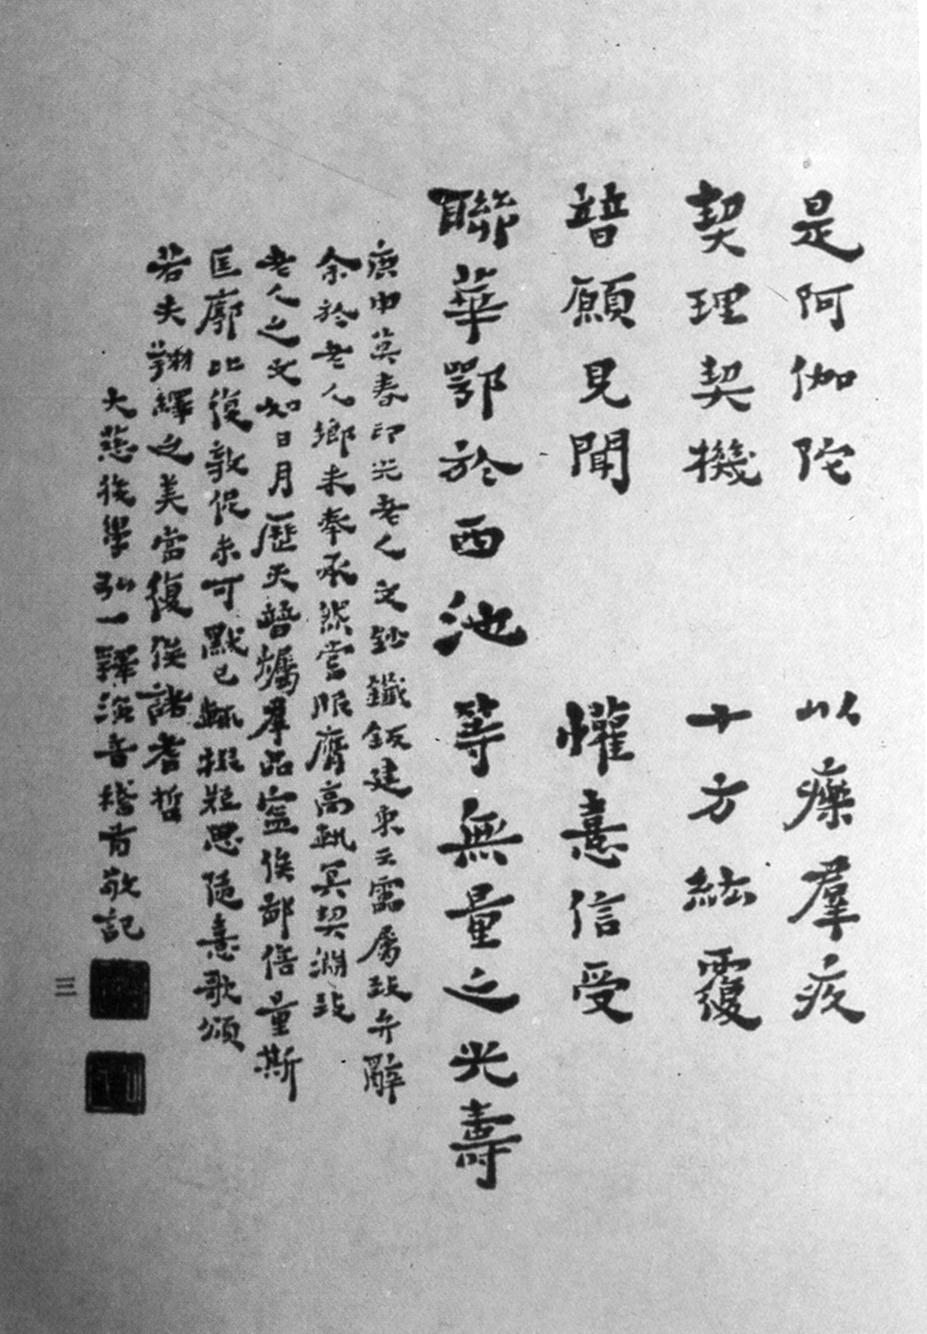 是阿伽陀　以療羣疚
契理契機　十方紘覆
普願見聞　懽憙信受
聯華鄂於西池等無量之光壽
庚申莫春印光老人文鈔鑯鈑建東云雷屬致弁辭
余於老人鄉未奉承然嘗服膺高軌冥契淵致
老人之文如日月歷天普爥羣品寍俟鄙倍量斯
匡廓比復敦促未可默已輒綴短思隨憙歌頌
若夫翔繹之美當復俟諸耆哲
大慈後學弘一釋演音稽首敬記
三